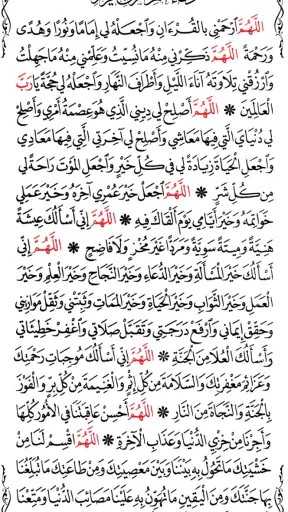 اللَّهُمَّ ارْحَمْنِي بِالْقُرْءَانِ وَاجْعَلْهُ لِي إِمَامًا وَنُورًا وَهُدًى
وَرَحْمَةً اللَّهُمَّ ذَكِّرْنِي مِنْهُ مَا نُسِّيتُ وَعَلِّمْنِي مِنْهُ مَا جَهِلْتُ
وَارْزُقْنِي تِلَاوَتَهُ آنَاءَ اللَّيْلِ وَأَطْرَافَ النَّهَارِ وَاجْعَلْهُ لِي حُجَّةً يَا رَبَّ
الْعَالَمِينَ * اللَّهُمَّ أَصْلِحْ لِي دِينِي الَّذِي هُوَ عِصْمَةُ أَمْرِي وَأَصْلِحْ
لِي دُنْيَايَ الَّتِي فِيهَا مَعَاشِي وَأَصْلِحْ لِي آخِرَتِي الَّتِي فِيهَا مَعَادِي
وَاجْعَلِ الْحَيَاةَ زِيَادَةً لِي فِي كُلِّ خَيْرٍ وَاجْعَلِ الْمَوْتَ رَاحَةً لِي
مِنْ كُلِّ شَرٍّ * اللَّهُمَّ اجْعَلْ خَيْرَ عُمْرِي آخِرَهُ وَخَيْرَ عَمَلِي
خَوَاتِمَهُ وَخَيْرَ أَيَّامِي يَوْمَ أَلْقَاكَ فِيهِ * اللَّهُمَّ إِنِّي أَسْأَلُكَ عِيشَةً
هَنِيَّةً وَمِيتَةً سَوِيَّةً وَمَرَدًّا غَيْرَ مُخْزٍ وَلَا فَاضِحٍ * اللَّهُمَّ إِنِّي
أَسْأَلُكَ خَيْرَ الْمَسْأَلَةِ وَخَيْرَ الدُّعَاءِ وَخَيْرَ النَّجَاحِ وَخَيْرَ الْعِلْمِ وَخَيْرَ
الْعَمَلِ وَخَيْرَ الثَّوَابِ وَخَيْرَ الْحَيَاةِ وَخَيْرَ الْمَمَاتِ وَثَبِّتْنِي وَثَقِّلْ مَوَازِينِي
وَحَقِّقْ إِيمَانِي وَارْفَعْ دَرَجَتِي وَتَقَبَّلْ صَلَاتِي وَاغْفِرْ خَطِيئَاتِي
وَأَسْأَلُكَ الْعُلَا مِنَ الْجَنَّةِ * اللَّهُمَّ إِنِّي أَسْأَلُكَ مُوجِبَاتِ رَحْمَتِكَ
وَعَزَائِمَ مَغْفِرَتِكَ وَالسَّلَامَةَ مِنْ كُلِّ إِثْمٍ وَالْغَنِيمَةَ مِنْ كُلِّ بِرٍّ وَالْفَوْزَ
بِالْجَنَّةِ وَالنَّجَاةَ مِنَ النَّارِ * اللَّهُمَّ أَحْسِنْ عَاقِبَتَنَا فِي الْأُمُورِ كُلِّهَا
وَأَجِرْنَا مِنْ خِزْيِ الدُّنْيَا وَعَذَابِ الْآخِرَةِ * اللَّهُمَّ اقْسِمْ لَنَا مِنْ
خَشْيَتِكَ مَا تَحُولُ بِهِ بَيْنَنَا وَبَيْنَ مَعْصِيَتِكَ وَمِنْ طَاعَتِكَ مَا تُبَلِّغُنَا
بِهَا جَنَّتَكَ وَمِنَ الْيَقِينِ مَا تُهَوِّنُ بِهِ عَلَيْنَا مَصَائِبَ الدُّنْيَا وَمَتِّعْنَا